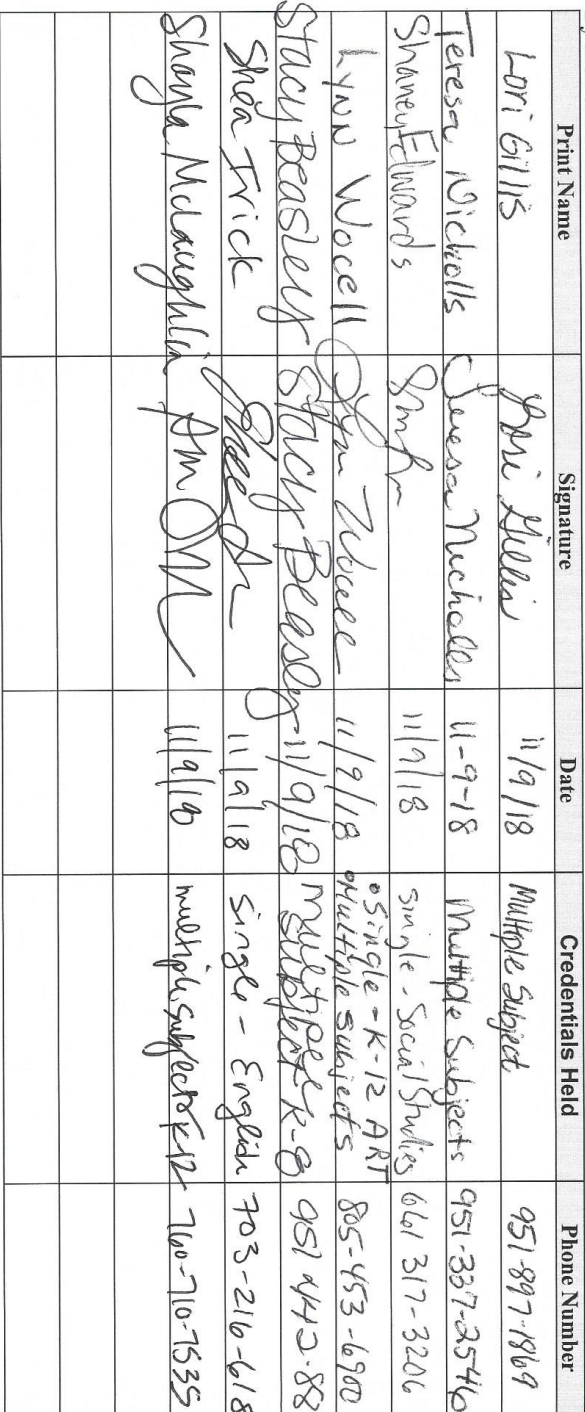 Print Name Signature Date Credentials Held Phone Number
Lori Gillis Lori Gillis 11/9/18 Multiple Subject 951-897-1869
Teresa Nicholls Teresa Nicholls 11-9-18 Multiple Subjects 951-337-2546
Shaney Edwards 11/9/18 single - Social Studies 661 317-3206
Lynn Wocell Lynn Wocell 11/9/18 •Single - K-12 ART
•Multiple subjects 805-453-6900
Stacy Beasley Stacy Beasley 11/9/18 Multiple
Subject K-8 951 442-88
Shea Irick 11/9/18 single - English 703-216-618
Shayla McLaughlin 11/9/18 multiple subject K-12 760-710-7535